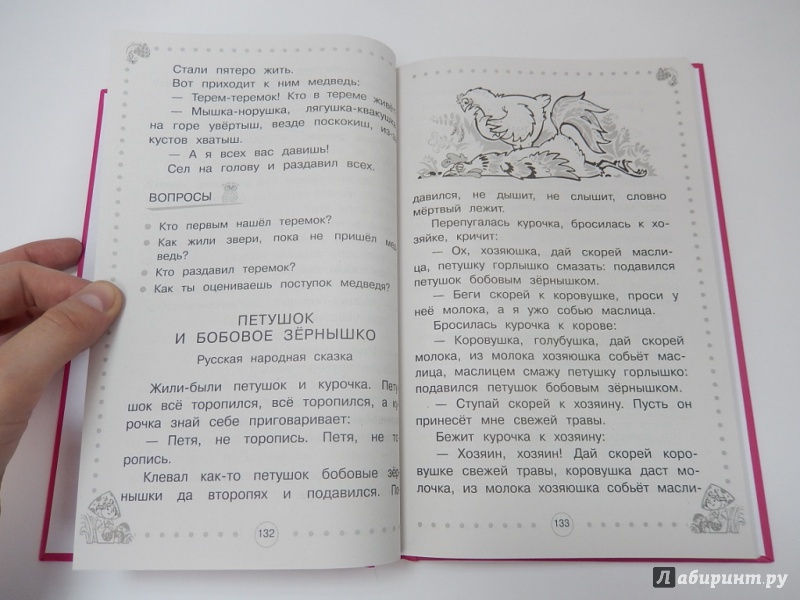 Стали пятеро жить.
Вот приходит к ним медведь:
— Терем-теремок! Кто в тереме живёт
— Мышка-норушка, лягушка-квакуш
на горе увёртыш, везде поскокиш, из-з
кустов хватыш.
— А я всех вас давишь!
Сел на голову и раздавил всех.
ВОПРОСЫ
Кто первым нашёл теремок?
Как жили звери, пока не пришёл мед
ведь?
Кто раздавил теремок?
Как ты оцениваешь поступок медведя?
ПЕТУШОК
И БОБОВОЕ ЗЁРНЫШКО
Русская народная сказка
Жили-были петушок и курочка. Пету
шок всё торопился, всё торопился, а ку
рочка знай себе приговаривает:
— Петя, не торопись. Петя, не то
ропись.
Клевал как-то петушок бобовые зёр
нышки да второпях и подавился. По
132
давился, не дышит, не слышит, словно
мёртвый лежит.
Перепугалась курочка, бросилась к хо-
зяйке, кричит:
— Ох, хозяюшка, дай скорей масли-
ца, петушку горлышко смазать: подавился
петушок бобовым зёрнышком.
— Беги скорей к коровушке, проси у
неё молока, а я ужо собью маслица.
Бросилась курочка к корове:
— Коровушка, голубушка, дай скорей
молока, из молока хозяюшка собьёт мас-
лица, маслицем смажу петушку горлышко:
подавился петушок бобовым зёрнышком.
— Ступай скорей к хозяину. Пусть он
принесёт мне свежей травы.
Бежит курочка к хозяину:
— Хозяин, хозяин! Дай скорей коро-
вушке свежей травы, коровушка даст мо-
лочка, из молока хозяюшка собьёт масли-
133
Лабиринт.ру